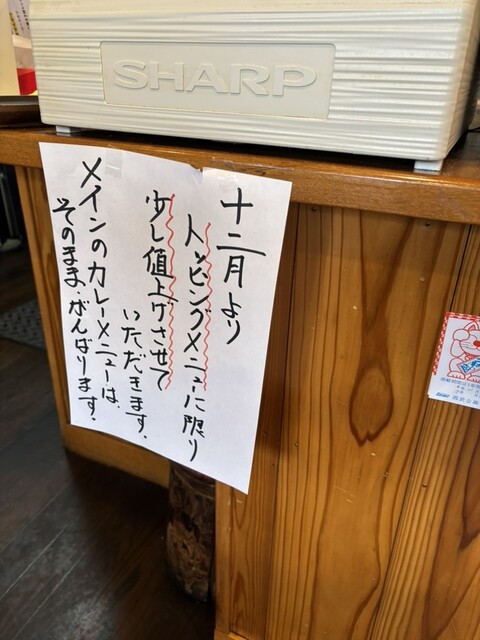 SHARP
十二月より
トッピングメニューに限り
少し値上げさせて
いただきます.
メインのカレーメニューは、
そのまま.がんばります.